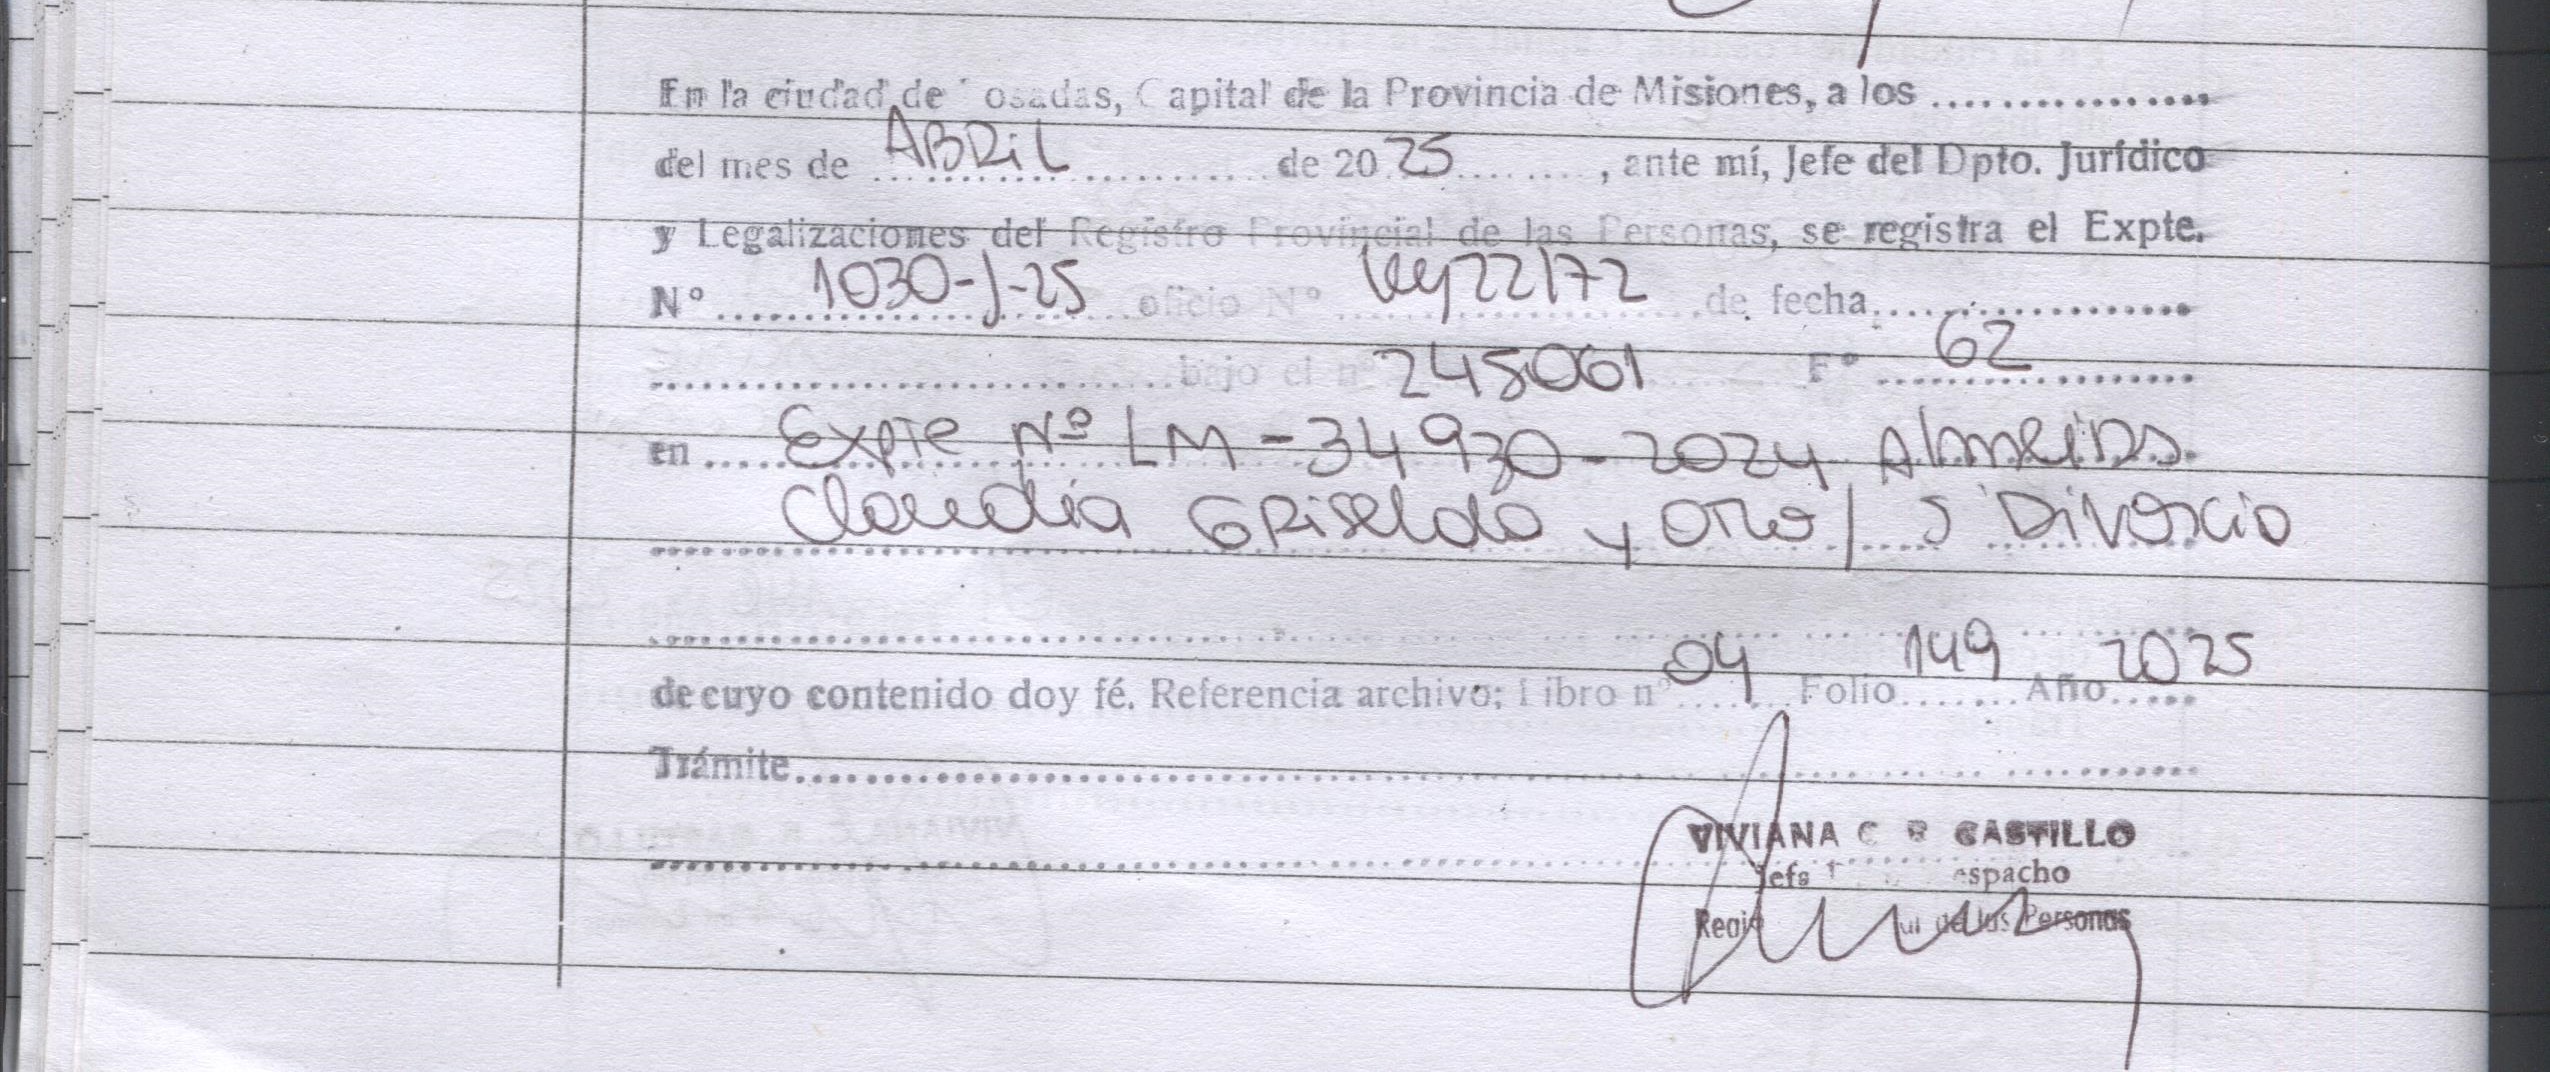 En la ciudad de osadas, Capital de la Provincia de Misiones, a los ................
del mes de ABRIL de 20 25 , ante mí, Jefe del Dpto. Jurídico
y Legalizaciones del Registro Provincial de las Personas, se registra el Expte.
Nº 1030-J-25 oficio Nº Ley 22172 de fecha................
................ bajo el nº 245061 Fº 62
en Expte Nº LM-34930-2024 Almeida
Claudia Griselda y otro/ S Divorcio
de cuyo contenido doy fé. Referencia archivo; Libro nº 04 Folio 149 Año 2025
Trámite................
VIVIANA C CASTILLO
Jefa espacho
de las Personas